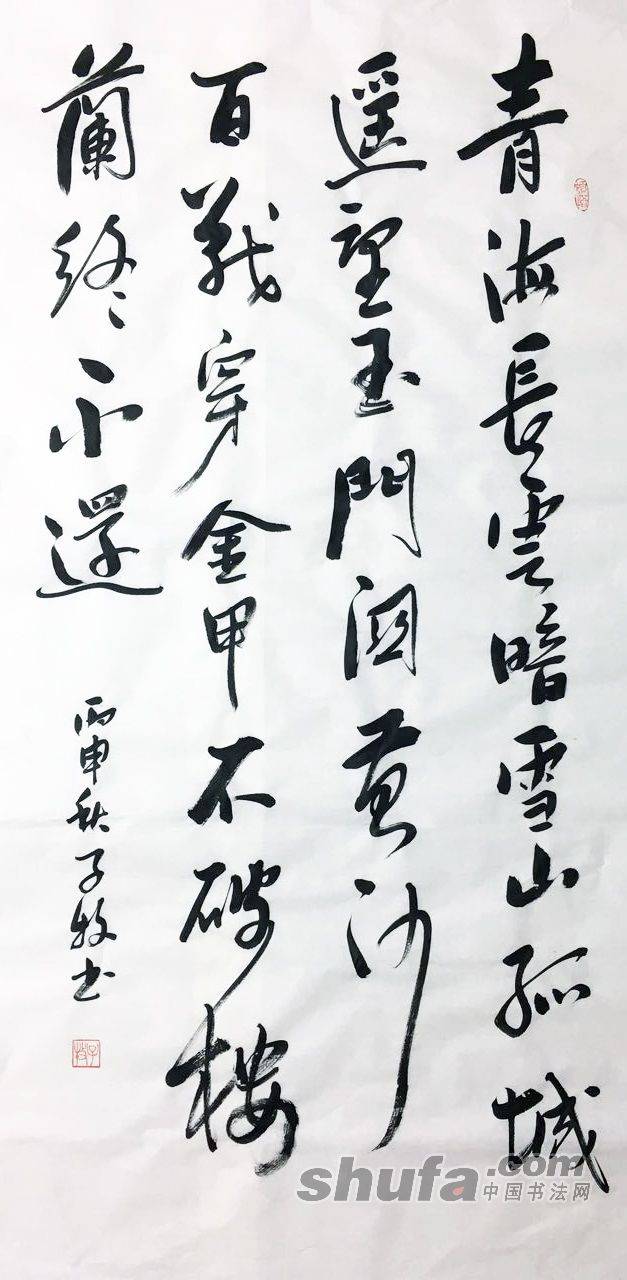 青海長雲暗雪山孤城
遥望玉門關黄沙
百戰穿金甲不破樓
蘭終不還
丙申秋子牧書
子牧
shufa.com
中国书法网